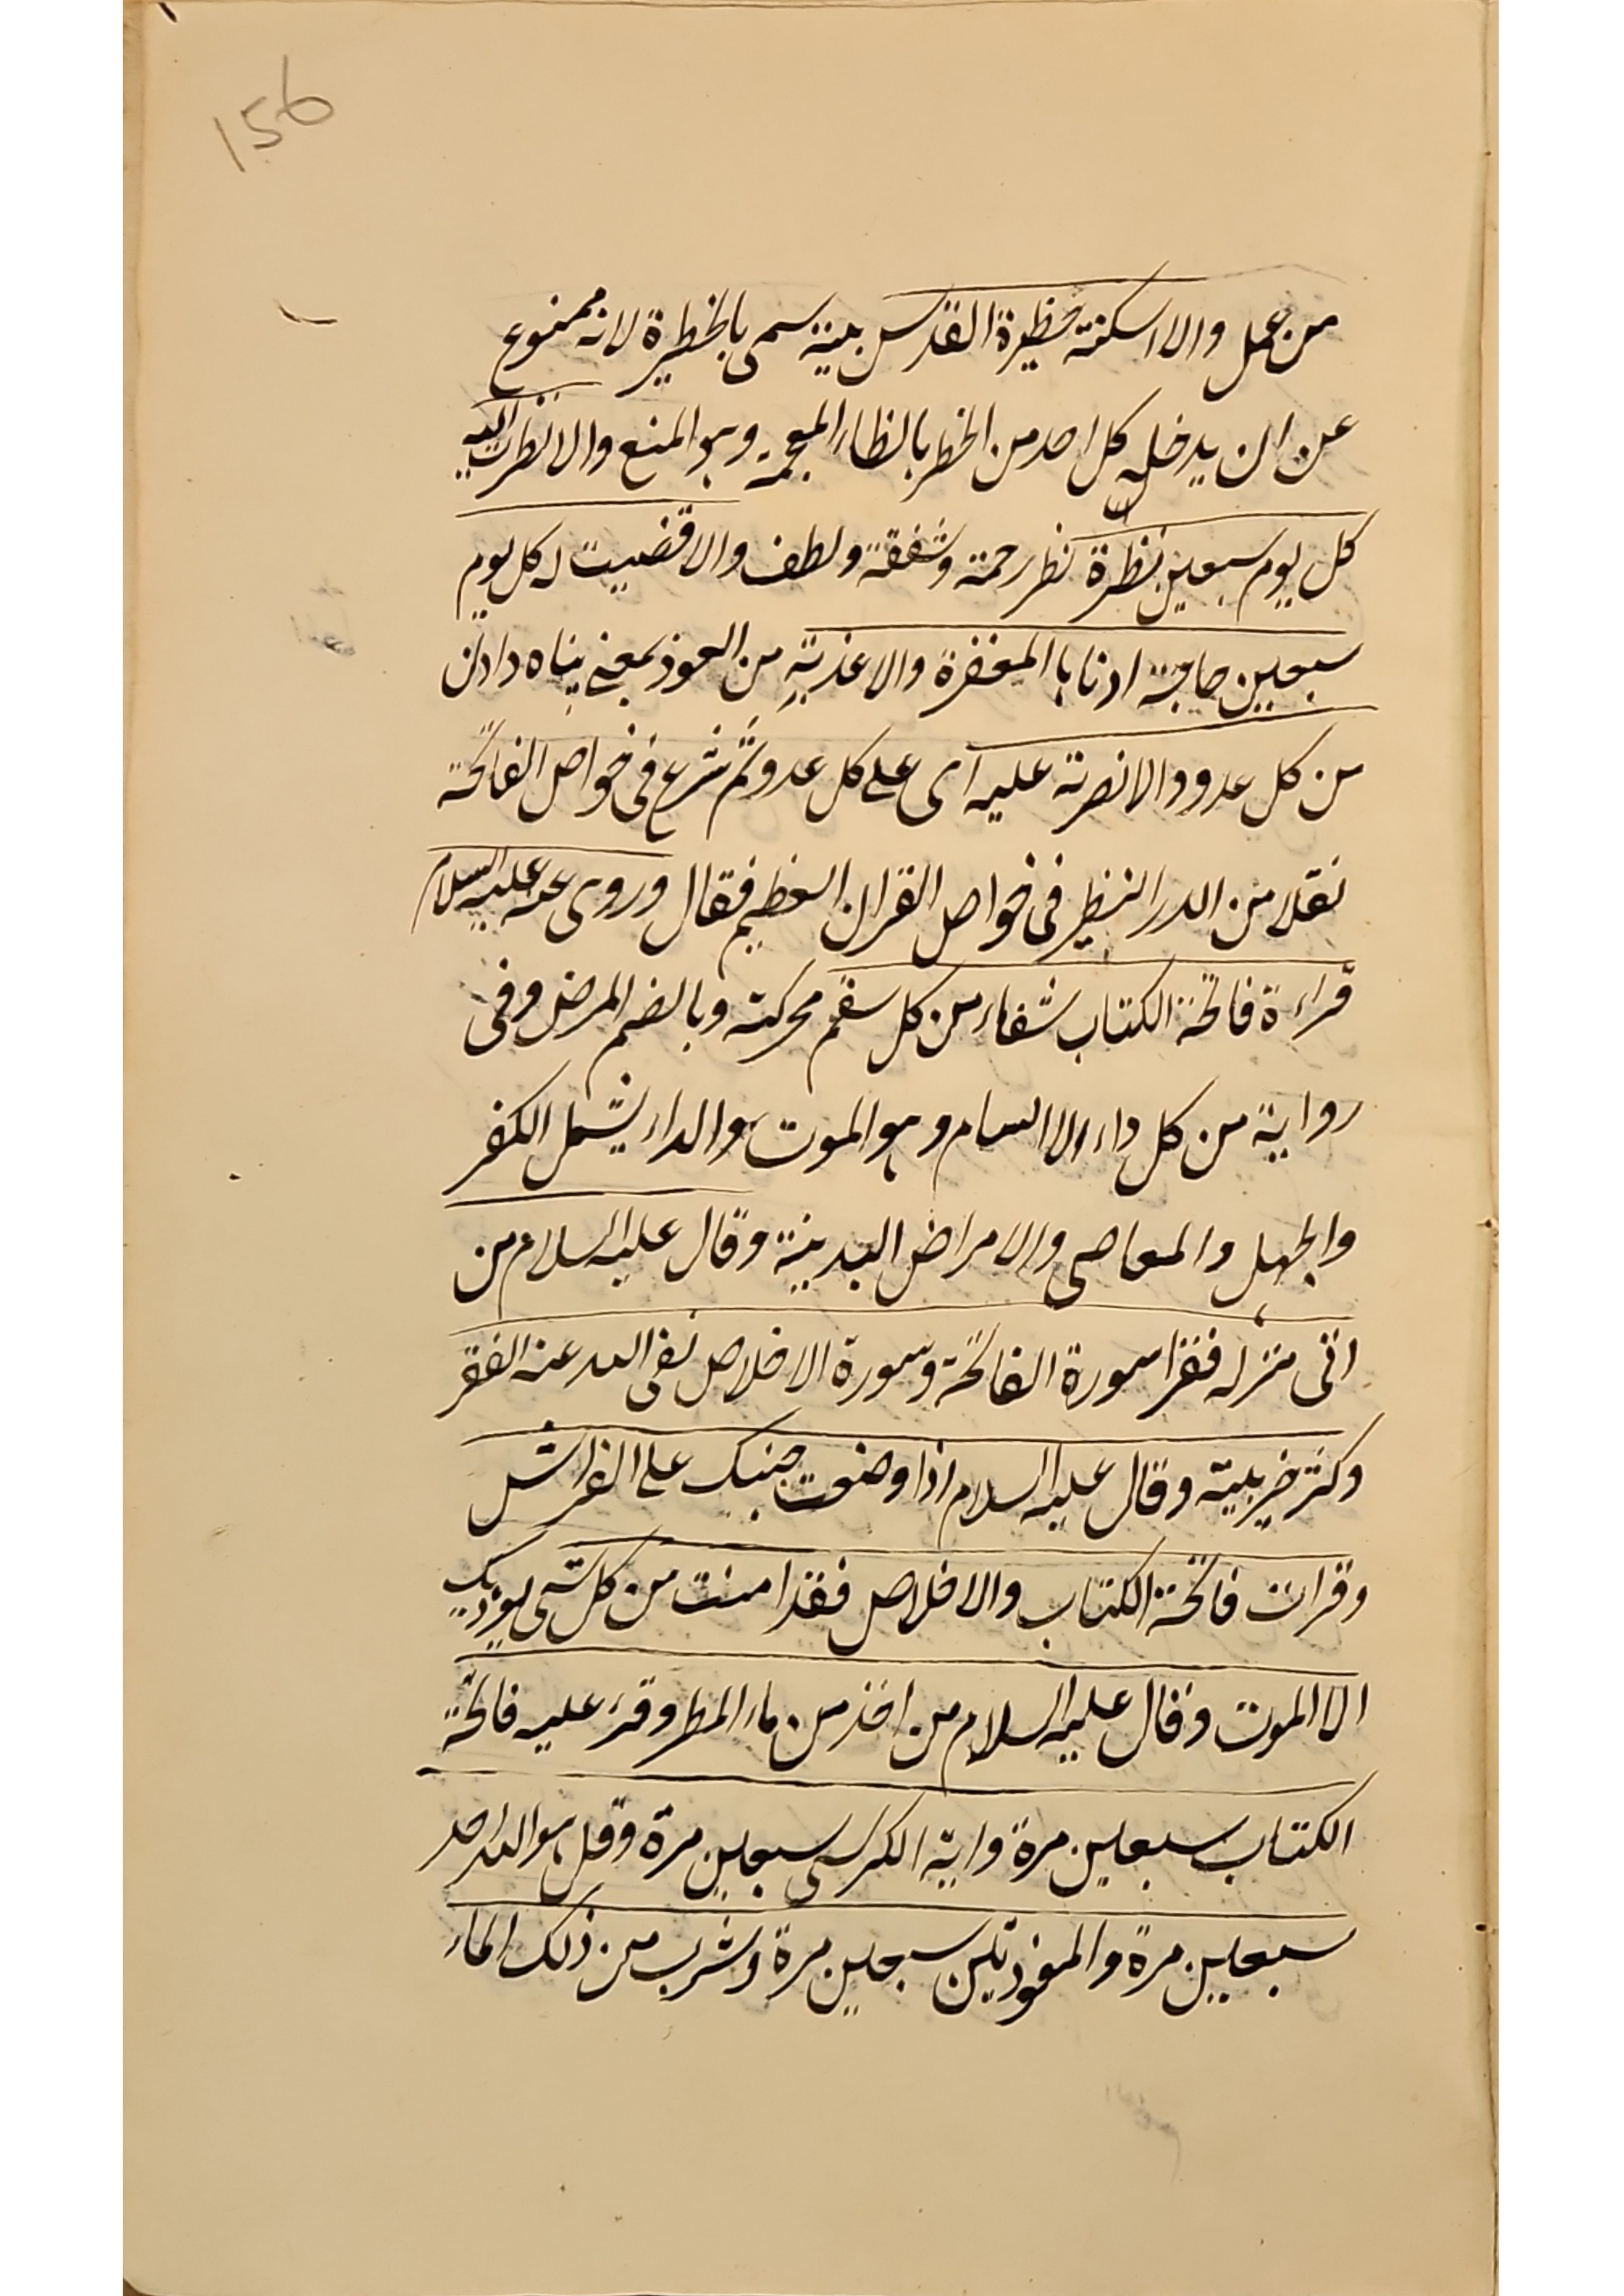 156
من عمل والا اسكنته حظيرة القدس بيته سمى بالحظيرة لانه ممنوع
عن ان يدخله كل احد من الحظر بالظاء المعجمة وهو المنع والا نظرت اليه
كل يوم سبعين نظرة نظر رحمة وشفقة ولطف والا قضيت له كل يوم
سبعين حاجة ادنا با المغفرة والا عذته من العوذ بمعنى پناه دادن
من كل عدو والا نصرته عليه اى على كل عدو ثم شرع فى خواص الفاتحة
نقلا من الدر النظيم فى خواص القران العظيم فقال وروى عنه عليه السلام
قراءة فاتحة الكتاب شفاء من كل سقم محركة وبالضم المرض وفى
رواية من كل داء الا السام وهو الموت والداء يشمل الكفر
والجهل والمعاصى والامراض البدنية وقال عليه السلام من
اتى منزله فقرا سورة الفاتحة وسورة الاخلاص نفى الله عنه الفقر
وكثر خير بيته وقال عليه السلام اذا وضعت جنبك على الفراش
وقرات فاتحة الكتاب والاخلاص فقد امنت من كل شى يوذيك
الا الموت وقال عليه السلام من اخذ من ماء المطر وقرء عليه فاتحة
الكتاب سبعين مرة واية الكرسى سبعين مرة وقل هو الله احد
سبعين مرة والمعوذتين سبعين مرة وشرب من ذلك الماء